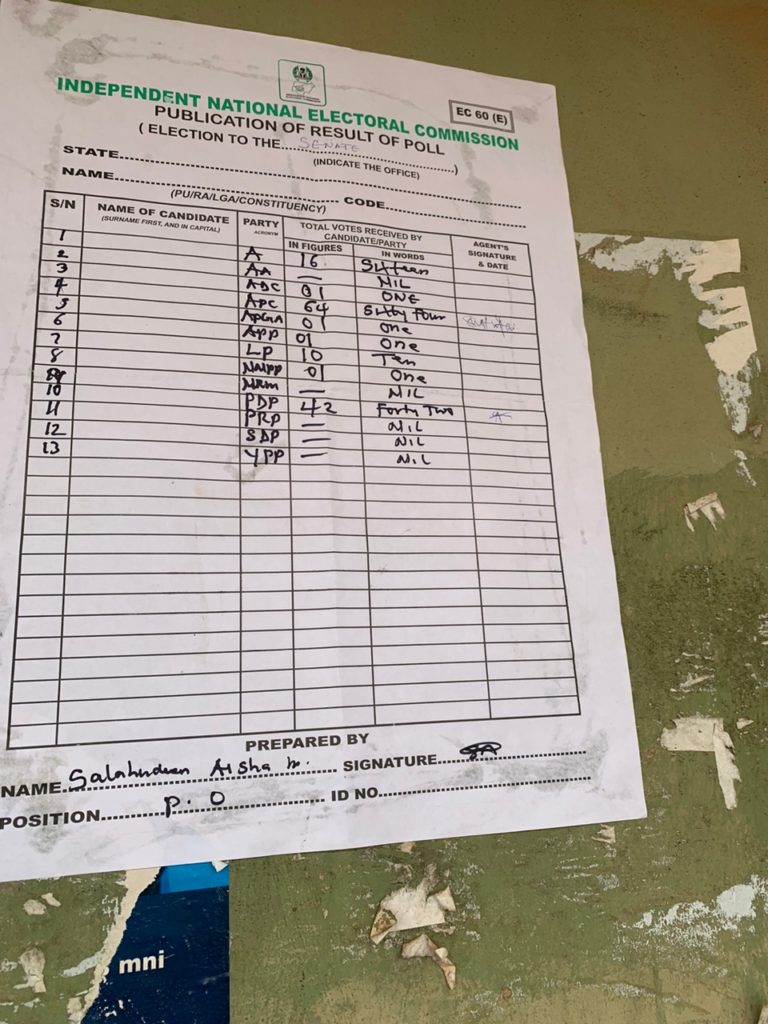 INDEPENDENT NATIONAL ELECTORAL COMMISSION
EC 60 (E)
PUBLICATION OF RESULT OF POLL
( ELECTION TO THE....SENATE....................)
(INDICATE THE OFFICE)
STATE........................................
NAME........................................ CODE........................
(PU/RA/LGA/CONSTITUENCY)
S/N NAME OF CANDIDATE PARTY TOTAL VOTES RECEIVED BY CANDIDATE/PARTY AGENT'S SIGNATURE & DATE
(SURNAME FIRST, AND IN CAPITAL) ACRONYM IN FIGURES IN WORDS
1 A 16 Sixteen
2 AA — NIL
3 ADC 01 ONE
4 APC 64 Sixty Four
5 APGA 01 One
6 APP 01 One
7 LP 10 Ten
8 NNPP 01 One
NRM — NIL
10 PDP 42 Forty Two
11 PRP — NIL
12 SDP — NIL
13 YPP — NIL
PREPARED BY
NAME..Salahudeen Aisha ........ SIGNATURE........................
POSITION..........P. O.................. ID NO..............................
mni